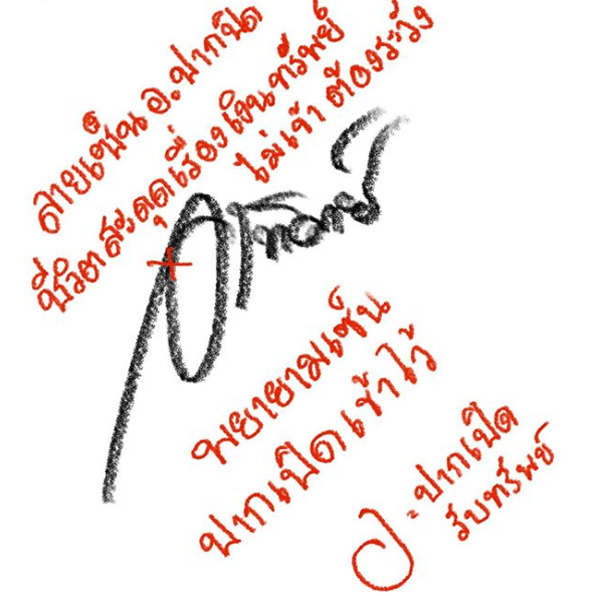 ลายเซ็น อ. ปากปิด
ชีวิตสะดุดเรื่องเงินทรัพย์
ไม่เข้า ต้องระวัง
พยายามเซ็น
ปากเปิดเข้าไว้
อ = ปากเปิด
รับทรัพย์